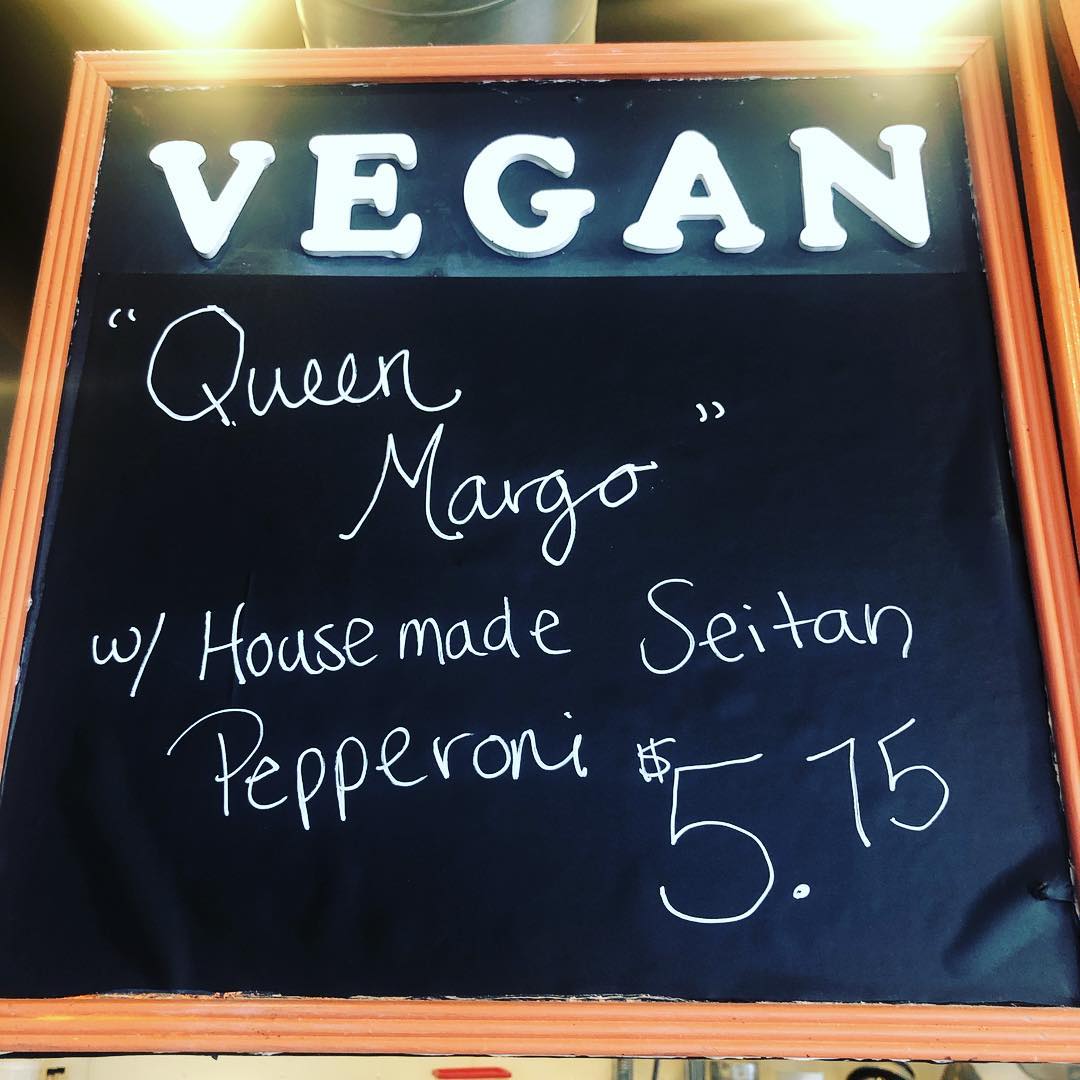 VEGAN
“Queen
Margo”
w/ Housemade Seitan
Pepperoni $5.75